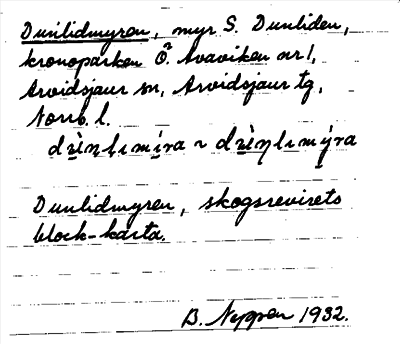 Dunlidmyren, myr S. Dunliden,
kronoparken Ö. Avaviken nr 1,
Arvidsjaur sn, Arvidsjaur tg,
Norrb. l.
Dunlidmyren, skogsrevirets
block-karta.
B. Nygren 1932.